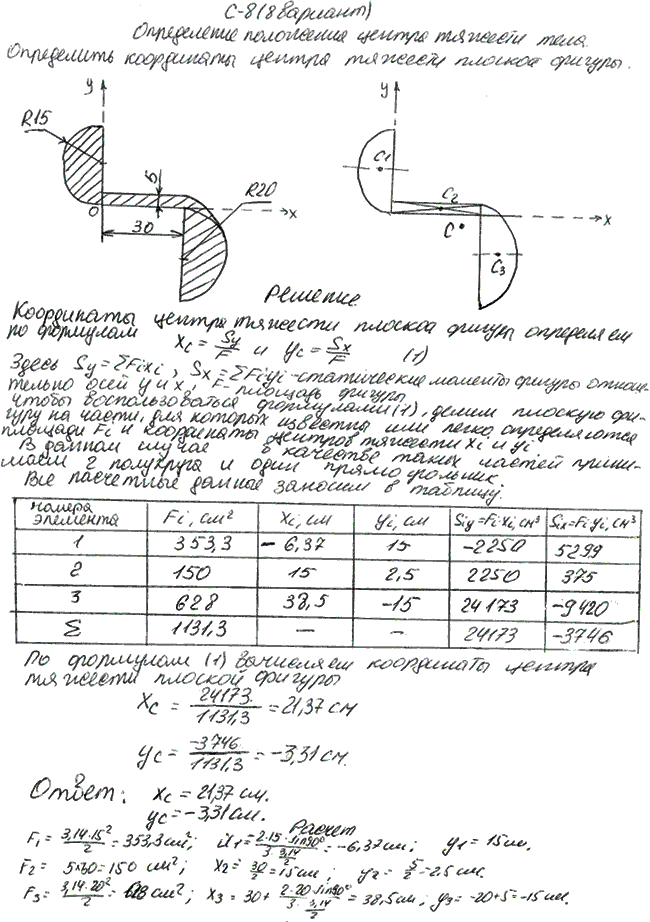 С-8 (8 вариант)
Определение положения центра тяжести тела.
Определить координаты центра тяжести плоской фигуры.
y
y
R15
C1
5
R20
C2
0
x
x
30
C
C3
Решение
Координаты центра тяжести плоской фигуры определяем
по формулам xc = Sy/F и yc = Sx/F (1)
Здесь Sy = ΣFixi, Sx = ΣFiyi - статические моменты фигуры относи-
тельно осей y и x, F - площадь фигуры
Чтобы воспользоваться формулами (1), делим плоскую фи-
гуру на части, для которых известны или легко определяются
площади Fi и координаты центров тяжести xi и yi.
В данном случае в качестве таких частей прини-
маем 2 полукруга и один прямоугольник.
Все расчетные данные заносим в таблицу.
номера элемента Fi, см² xi, см yi, см Siy=Fi·xi, см³ Six=Fi·yi, см³
1 353,3 -6,37 15 -2250 5299
2 150 15 2,5 2250 375
3 628 38,5 -15 24173 -9420
Σ 1131,3 - - 24173 -3746
По формулам (1) вычисляем координаты центра
тяжести плоской фигуры
xc = 24173/1131,3 = 21,37 см
yc = -3746/1131,3 = -3,31 см.
Ответ: xc = 21,37 см.
yc = -3,31 см.
Расчет
F1 = 3,14·15²/2 = 353,3 см²; x1 = 2·15·sin90°/(3·3,14/2) = -6,37 см; y1 = 15 см.
F2 = 5×30 = 150 см²; x2 = 30/2 = 15 см; y2 = 5/2 = 2,5 см.
F3 = 3,14·20²/2 = 628 см²; x3 = 30 + 2·20·sin90°/(3·3,14/2) = 38,5 см; y3 = -20+5 = -15 см.